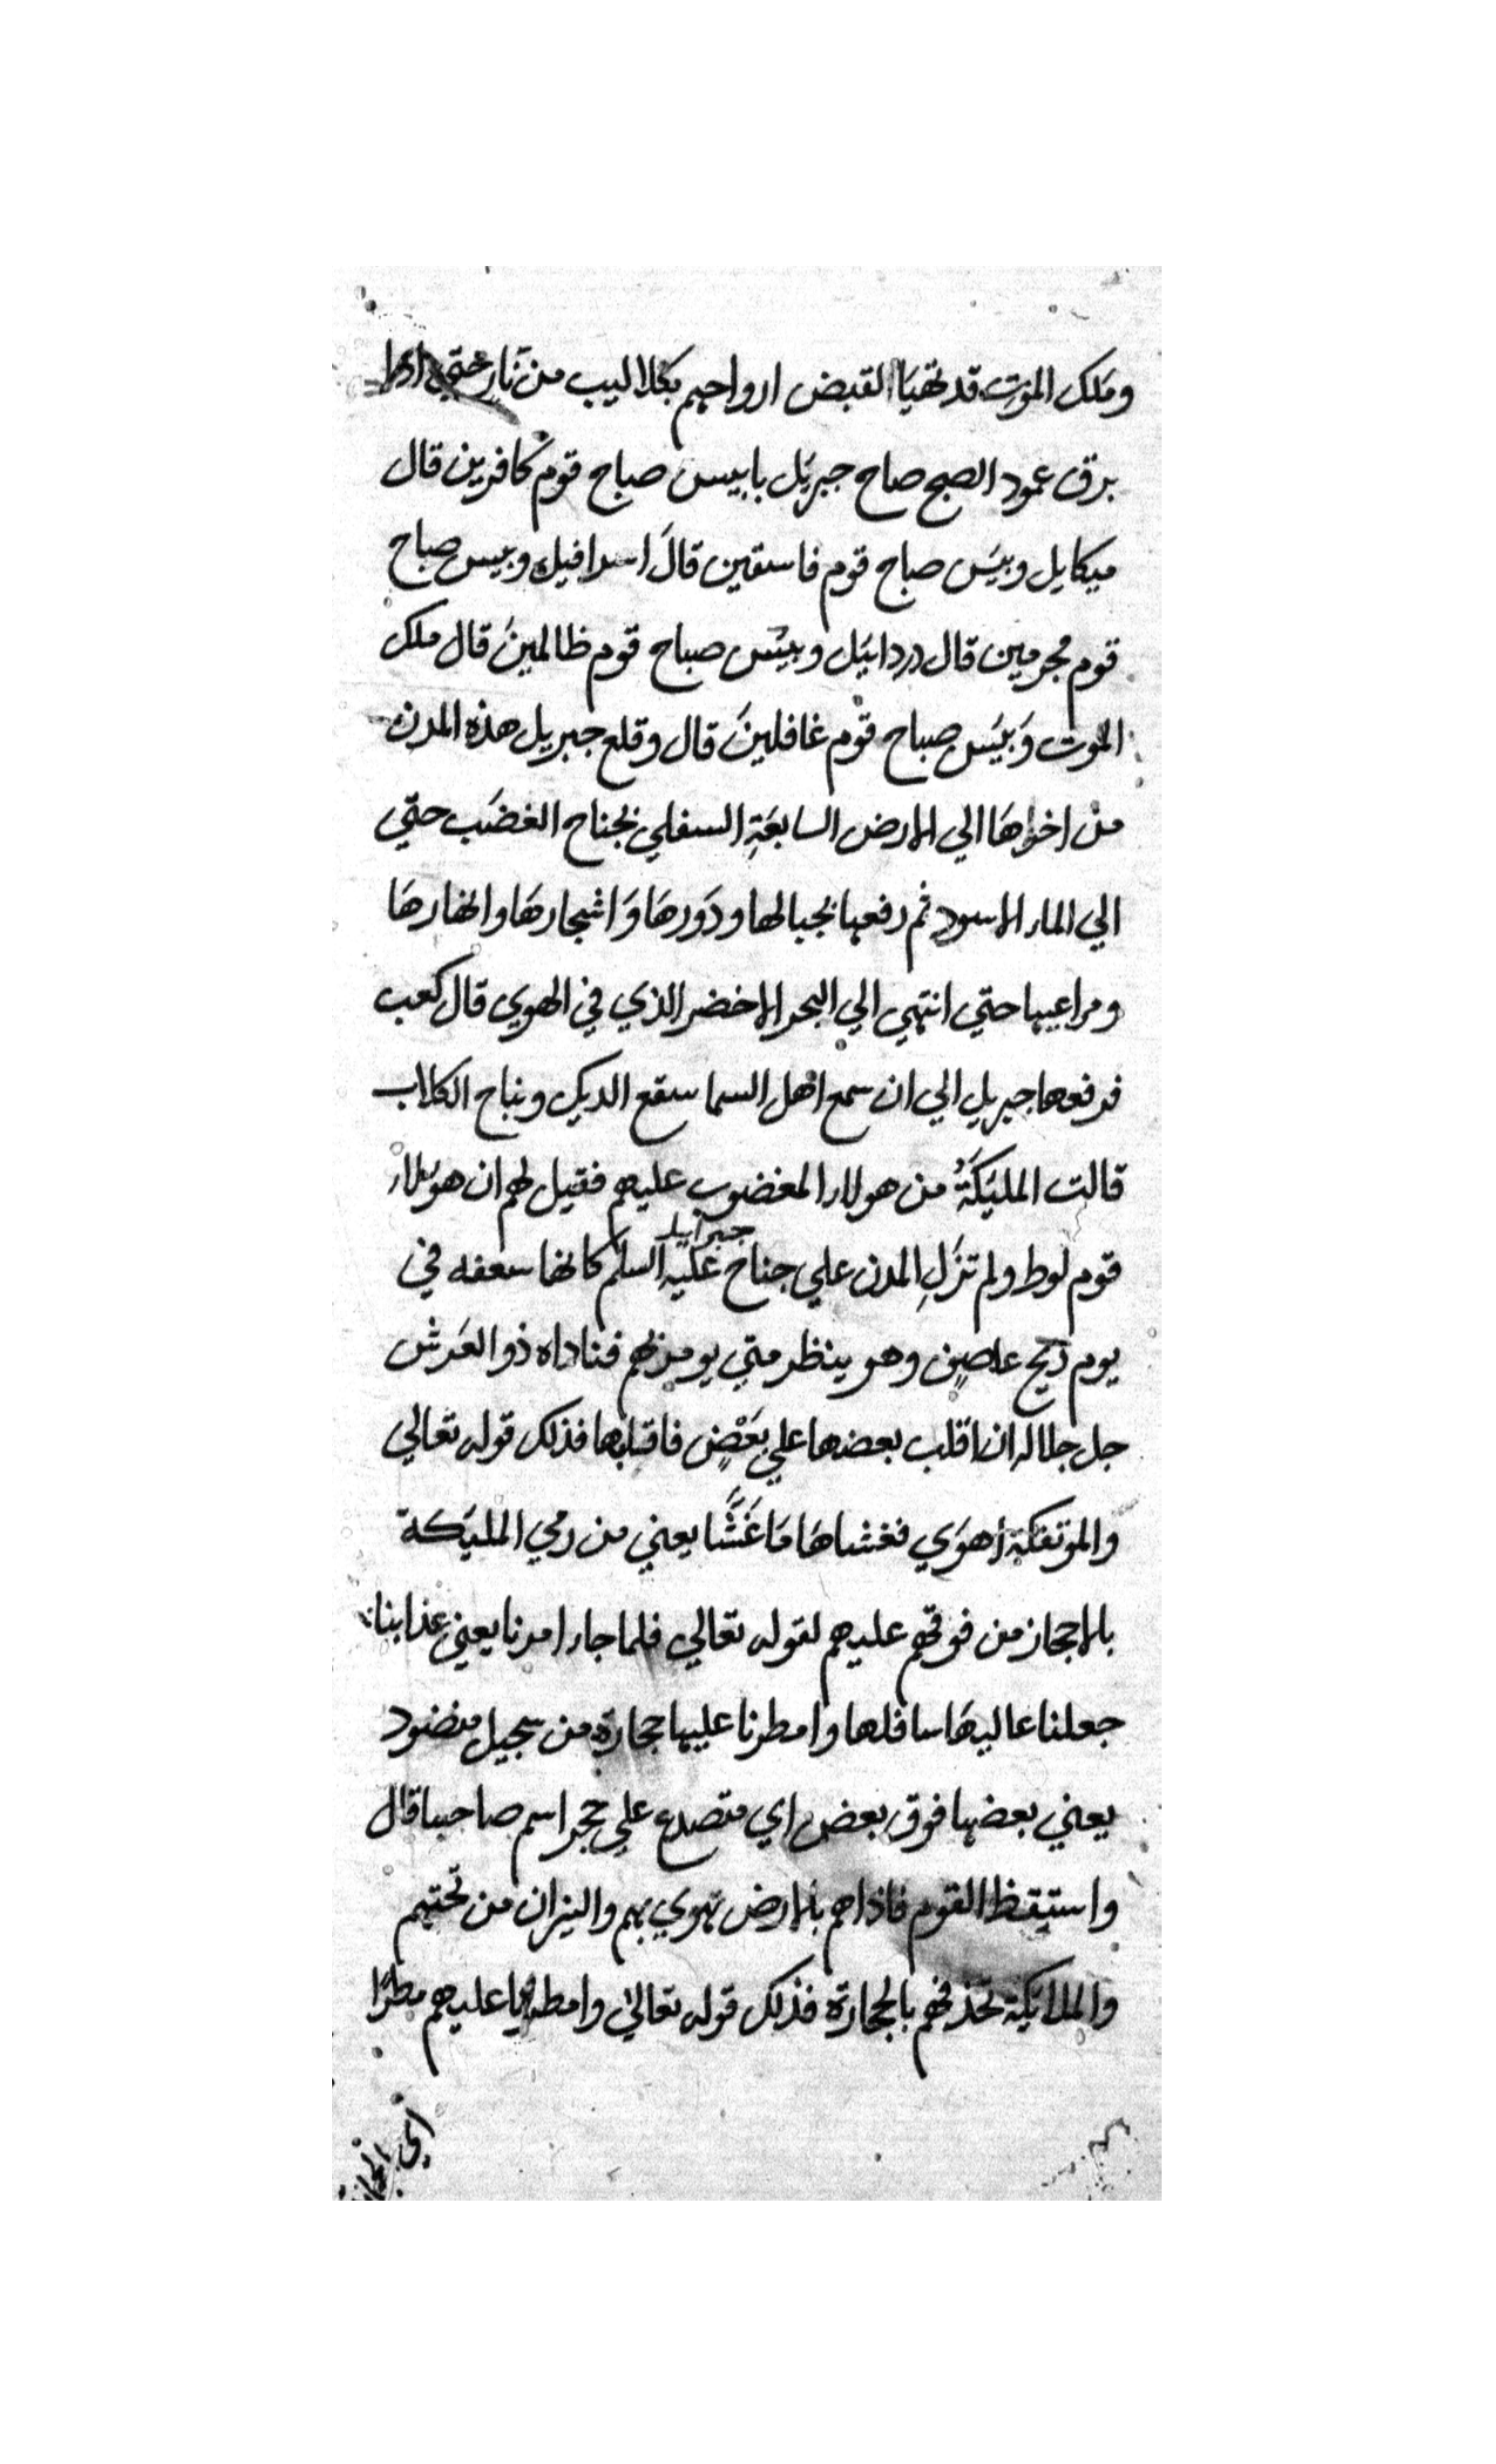 وملك الموت قد تهيأ لقبض ارواحهم بكلاليب من نار حتي اذا
برق عمود الصبح صاح جبريل بابيس صباح قوم كافرين قال
ميكايل وبيس صباح قوم فاسقين قال اسرافيل وبيس صباح
قوم مجرمين قال دردائيل وبيس صباح قوم ظالمين قال ملك
الموت وبيس صباح قوم غافلين قال وقلع جبريل هذه المدن
من اخراها الي الارض السابعة السفلي بجناح الغضب حتي
الي الماء الاسود ثم رفعها بجبالها ودورها واشجارها وانهارها
ومراعيها حتي انتهي الي البحر الاخضر الذي في الهوي قال كعب
فرفعها جبريل الي ان سمع اهل السما سقع الديك ونباح الكلاب
قالت المليكة من هولاء المغضوب عليهم فقيل لهم ان هولاء
قوم لوط ولم تزل المدن علي جناح جبرايل عليه السلم كانها سعفه في
يوم ريح عاصف وهو ينظر متي يومر بهم فناداه ذو العرش
جل جلاله ان اقلب بعضها علي بعض فاقلبها فذلك قوله تعالي
والموتفكة اهوي فغشاها ما غشا يعني من رمي المليكة
بالاحجار من فوقهم عليهم لقوله تعالي فلما جاء امرنا يعني عذابنا
جعلنا عاليها سافلها وامطرنا عليها حجارة من سجيل منضود
يعني بعضها فوق بعض اي متصدع علي حجر اسم صاحبها قال
واستيقظ القوم فاذاهم بالارض تهوي بهم والنيران من تحتهم
والملائكة تحذفهم بالحجارة فذلك قوله تعالي وامطرنا عليهم مطرا